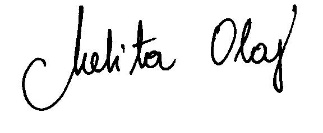 Melita Olaj